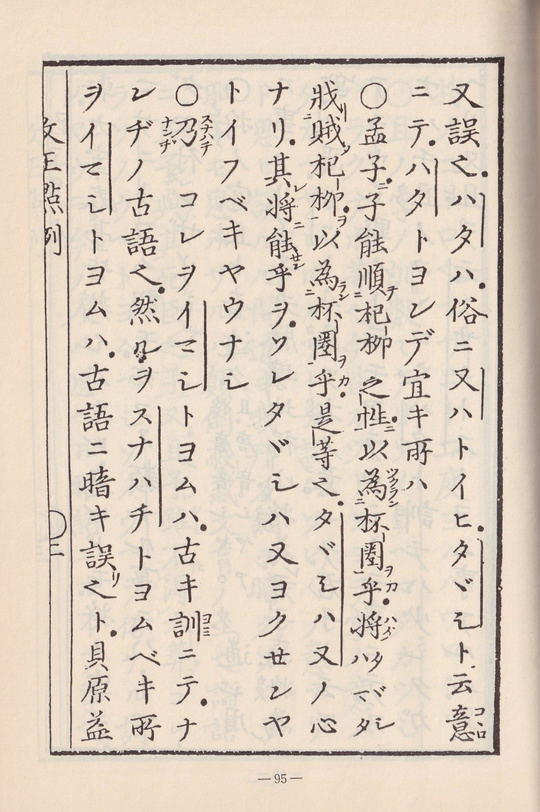 又誤之ハタハ俗ニ又ハトイヒタヾシト云意
ニテハタトヨンデ宜キ所ハ
〇孟子ニ子能順杞柳之性以為杯圏乎将ハタ
戕賊杞柳以為杯圏乎是等之タヾシハ又ノ心
ナリ其将能乎ヲソレタヾシハ又ヨクセンヤ
トイフベキヤウナシ
〇乃 コレヲイマシトヨムハ古キ訓ニテナ
レヂノ古語之然ルヲスナハチトヨムベキ所
ヲイマシトヨムハ古語ニ暗キ誤之ト貝原益
改正點例
二
—95—